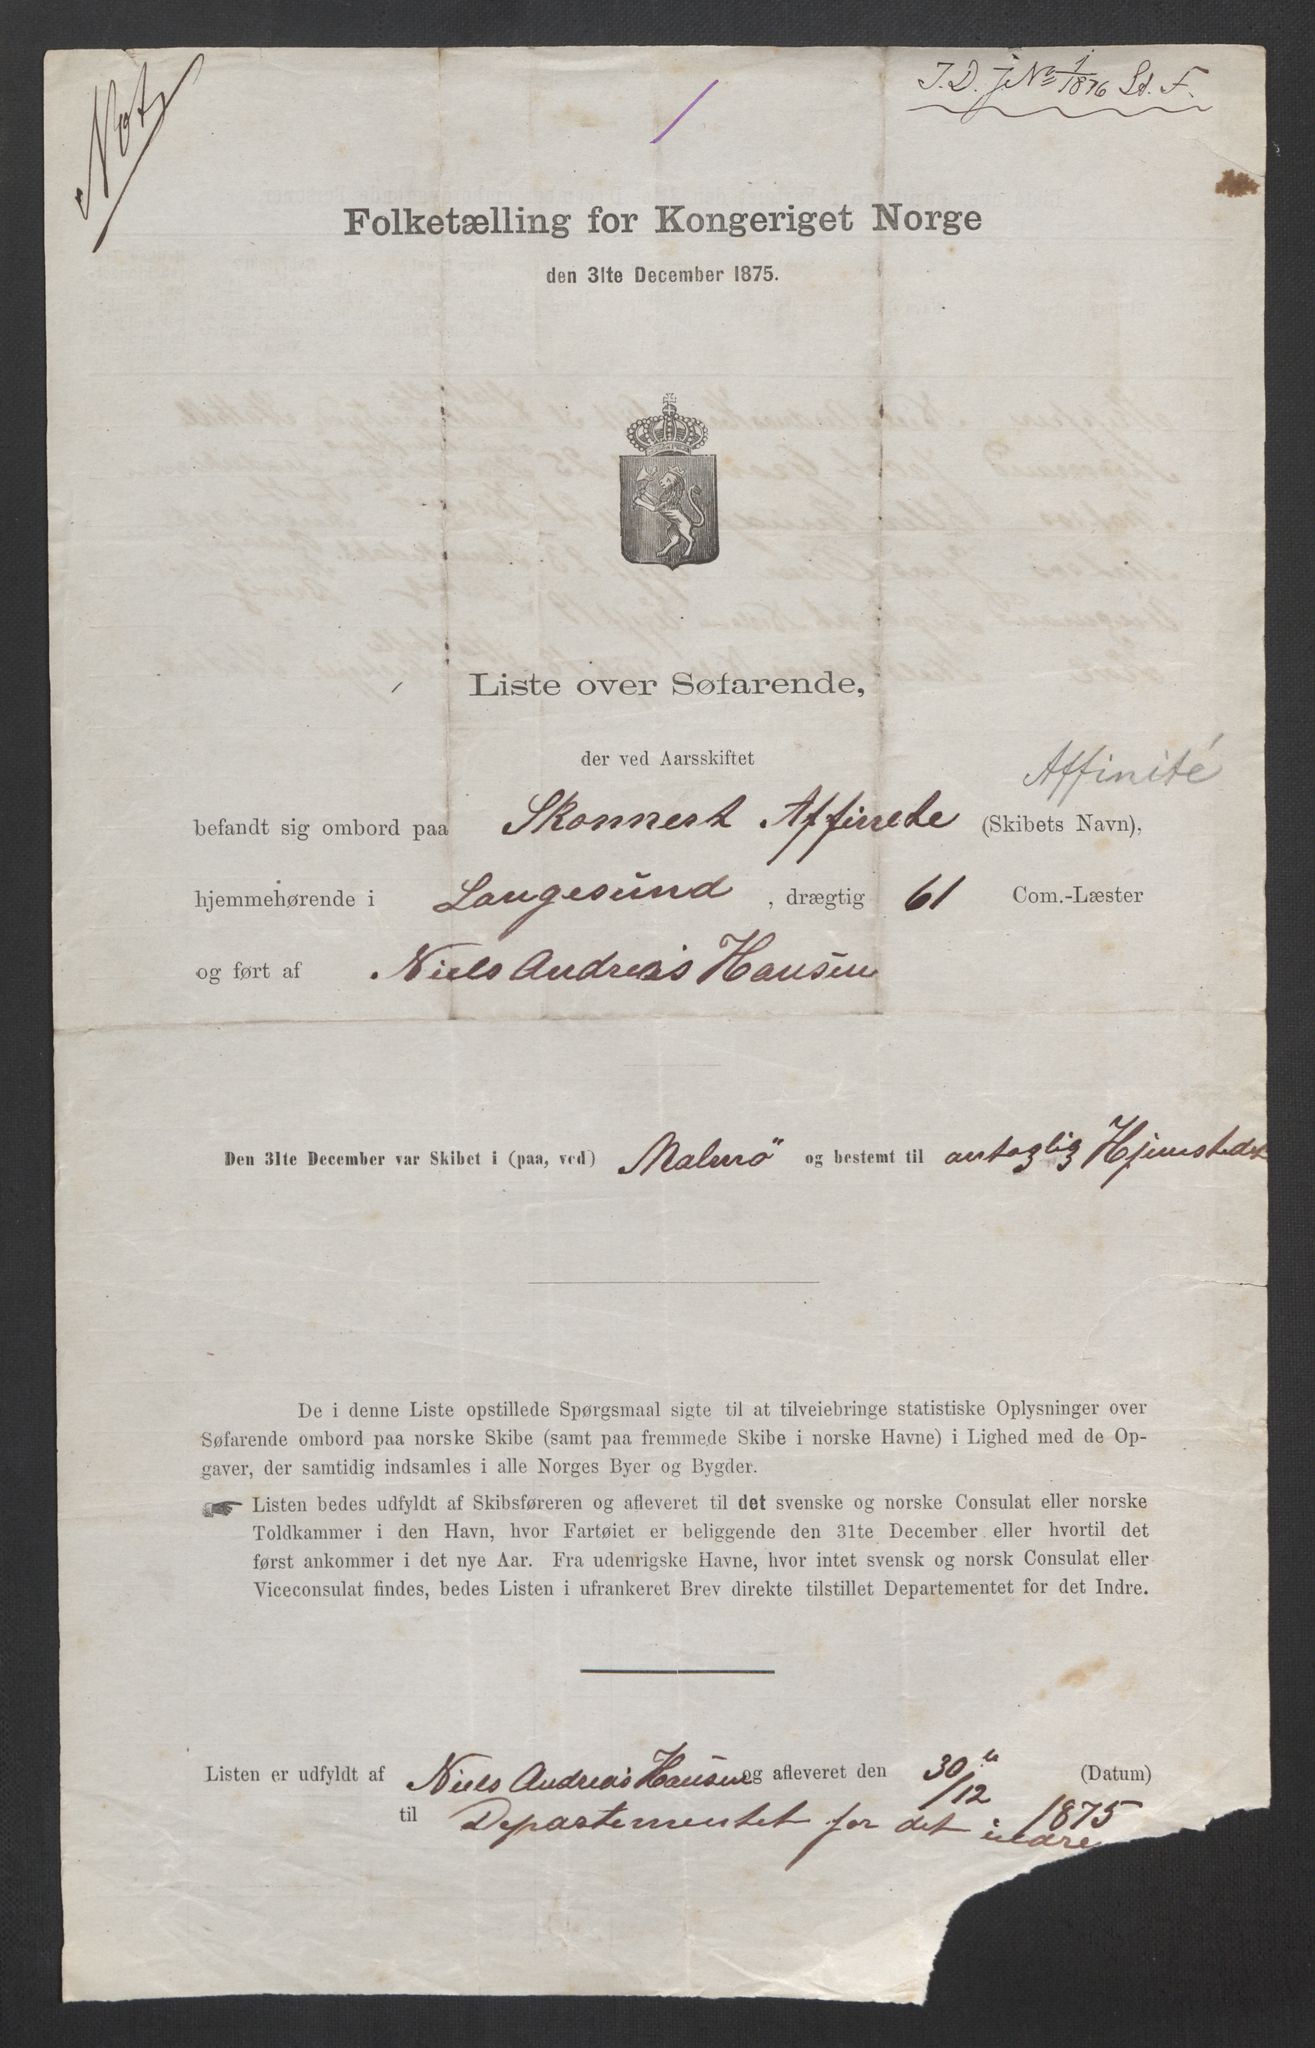 Not
I. D. jNo 1/1876 St. F.
Folketælling for Kongeriget Norge
den 31te December 1875.
Liste over Søfarende,
der ved Aarsskiftet
Affinité
befandt sig ombord paa Skonnert Affinete (Skibets Navn),
hjemmehørende i Langesund, drægtig 61 Com.-Læster
og ført af Niels Andreas Hansen
Den 31te December var Skibet i (paa, ved) Malmö og bestemt til antaglig Hjemstedet
De i denne Liste opstillede Spørgsmaal sigte til at tilveiebringe statistiske Oplysninger over
Søfarende ombord paa norske Skibe (samt paa fremmede Skibe i norske Havne) i Lighed med de Op-
gaver, der samtidig indsamles i alle Norges Byer og Bygder.
☛ Listen bedes udfyldt af Skibsføreren og afleveret til det svenske og norske Consulat eller norske
Toldkammer i den Havn, hvor Fartøiet er beliggende den 31te December eller hvortil det
først ankommer i det nye Aar. Fra udenrigske Havne, hvor intet svensk og norsk Consulat eller
Viceconsulat findes, bedes Listen i ufrankeret Brev direkte tilstillet Departementet for det Indre.
Listen er udfyldt af Niels Andreas Hansen og afleveret den 30te/12 (Datum)
1875
til Departementet for det indre